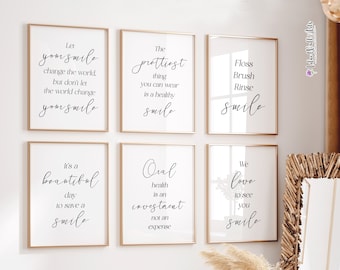 Let
your smile
change the world,
but don't let
the world change
your smile
The
prettiest
thing
you can wear
is a healthy
smile
Floss
Brush
Rinse
smile
it's a
beautiful
day
to save a
smile
Oral
health
is an
investment
not an
expense
We
love
to see
you
smile